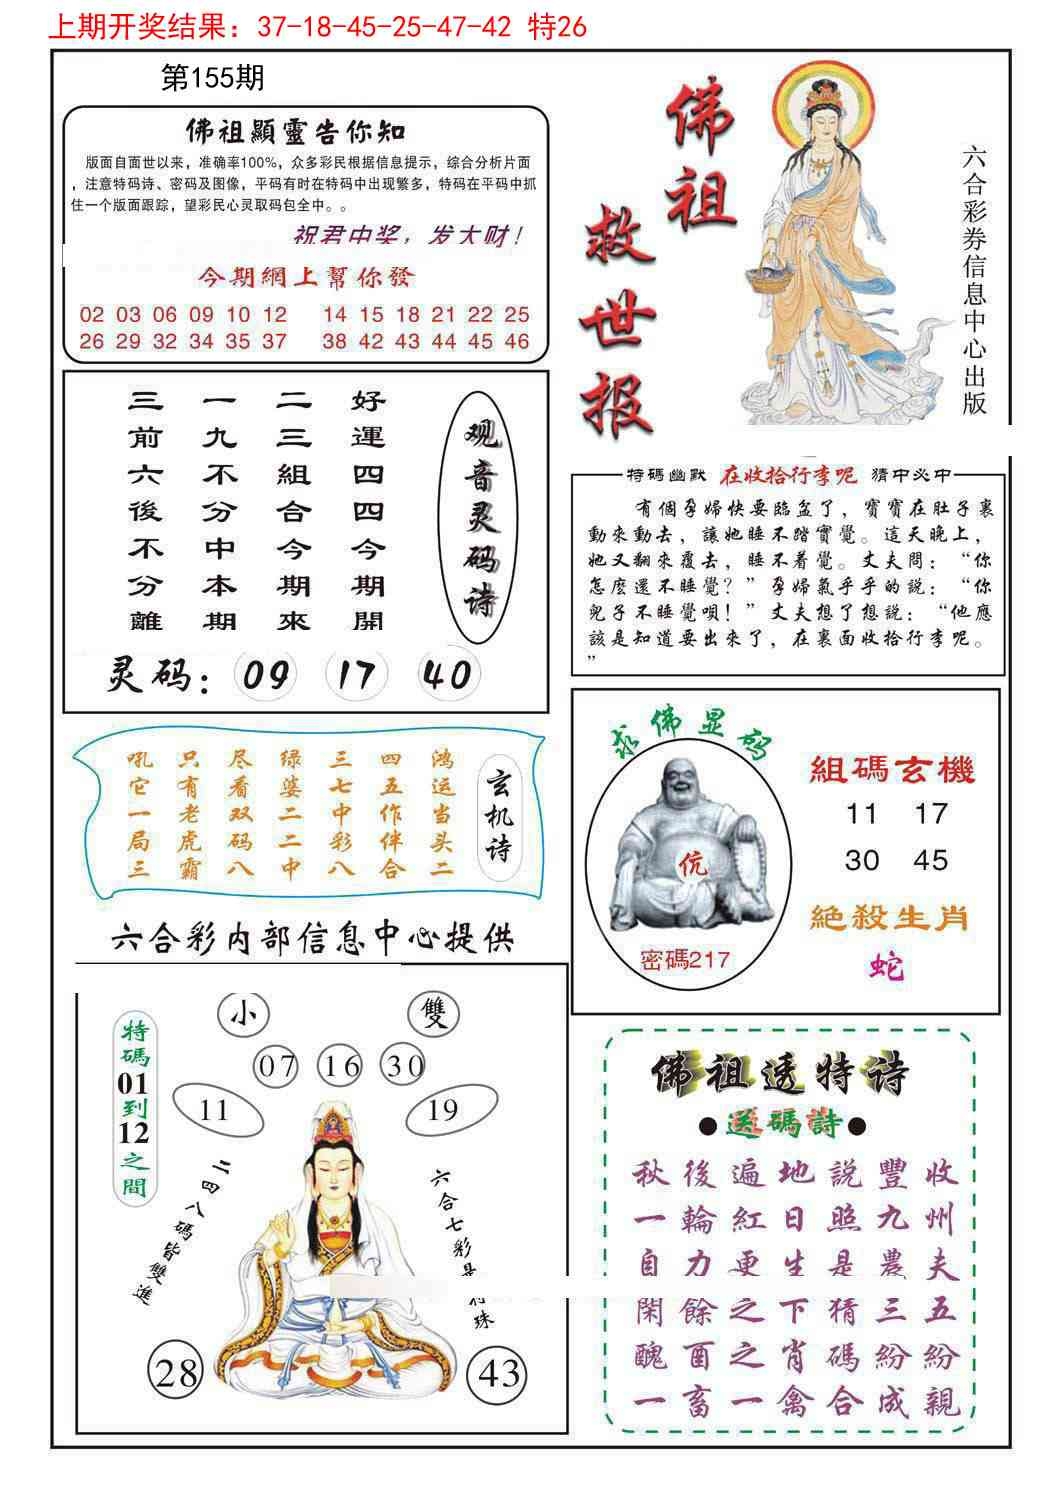 上期开奖结果：37-18-45-25-47-42 特26
第155期
佛祖顯靈告你知
版面自面世以来，准确率100%，众多彩民根据信息提示，综合分析片面
，注意特码诗、密码及图像，平码有时在特码中出现繁多，特码在平码中抓
住一个版面跟踪，望彩民心灵取码包全中。。
祝君中奖，发大财！
今期網上幫你發
02 03 06 09 10 12 14 15 18 21 22 25
26 29 32 34 35 37 38 42 43 44 45 46
佛祖
救世报
六合彩券信息中心出版
观音灵码诗
好運四四今期開
二三組合今期來
一九不分中本期
三前六後不分離
灵码：09 17 40
特碼幽默 在收拾行李呢 猜中必中
有個孕婦快要臨盆了，寶寶在肚子裏
動來動去，讓她睡不踏實覺。這天晚上，
她又翻來覆去，睡不着覺。丈夫問：“你
怎麽還不睡覺？”孕婦氣乎乎的説：“你
兒子不睡覺唄！”丈夫想了想説：“他應
該是知道要出來了，在裏面收拾行李呢。
”
玄机诗
鸿运当头二
四五作伴合
三七中彩八
绿婆二二中
尽看双码八
只有老虎霸
吼它一局三
求佛显码
伉
密碼217
組碼玄機
11 17
30 45
絶殺生肖
蛇
六合彩内部信息中心提供
小 雙
07 16 30
11 19
特碼01到12之間
二四八碼皆雙進
六合七彩是特珠
28 43
佛祖透特诗
●送碼詩●
秋後遍地説豐收
一輪紅日照九州
自力更生是農夫
閑餘之下猜三五
醜酉之肖碼紛紛
一畜一禽合成親